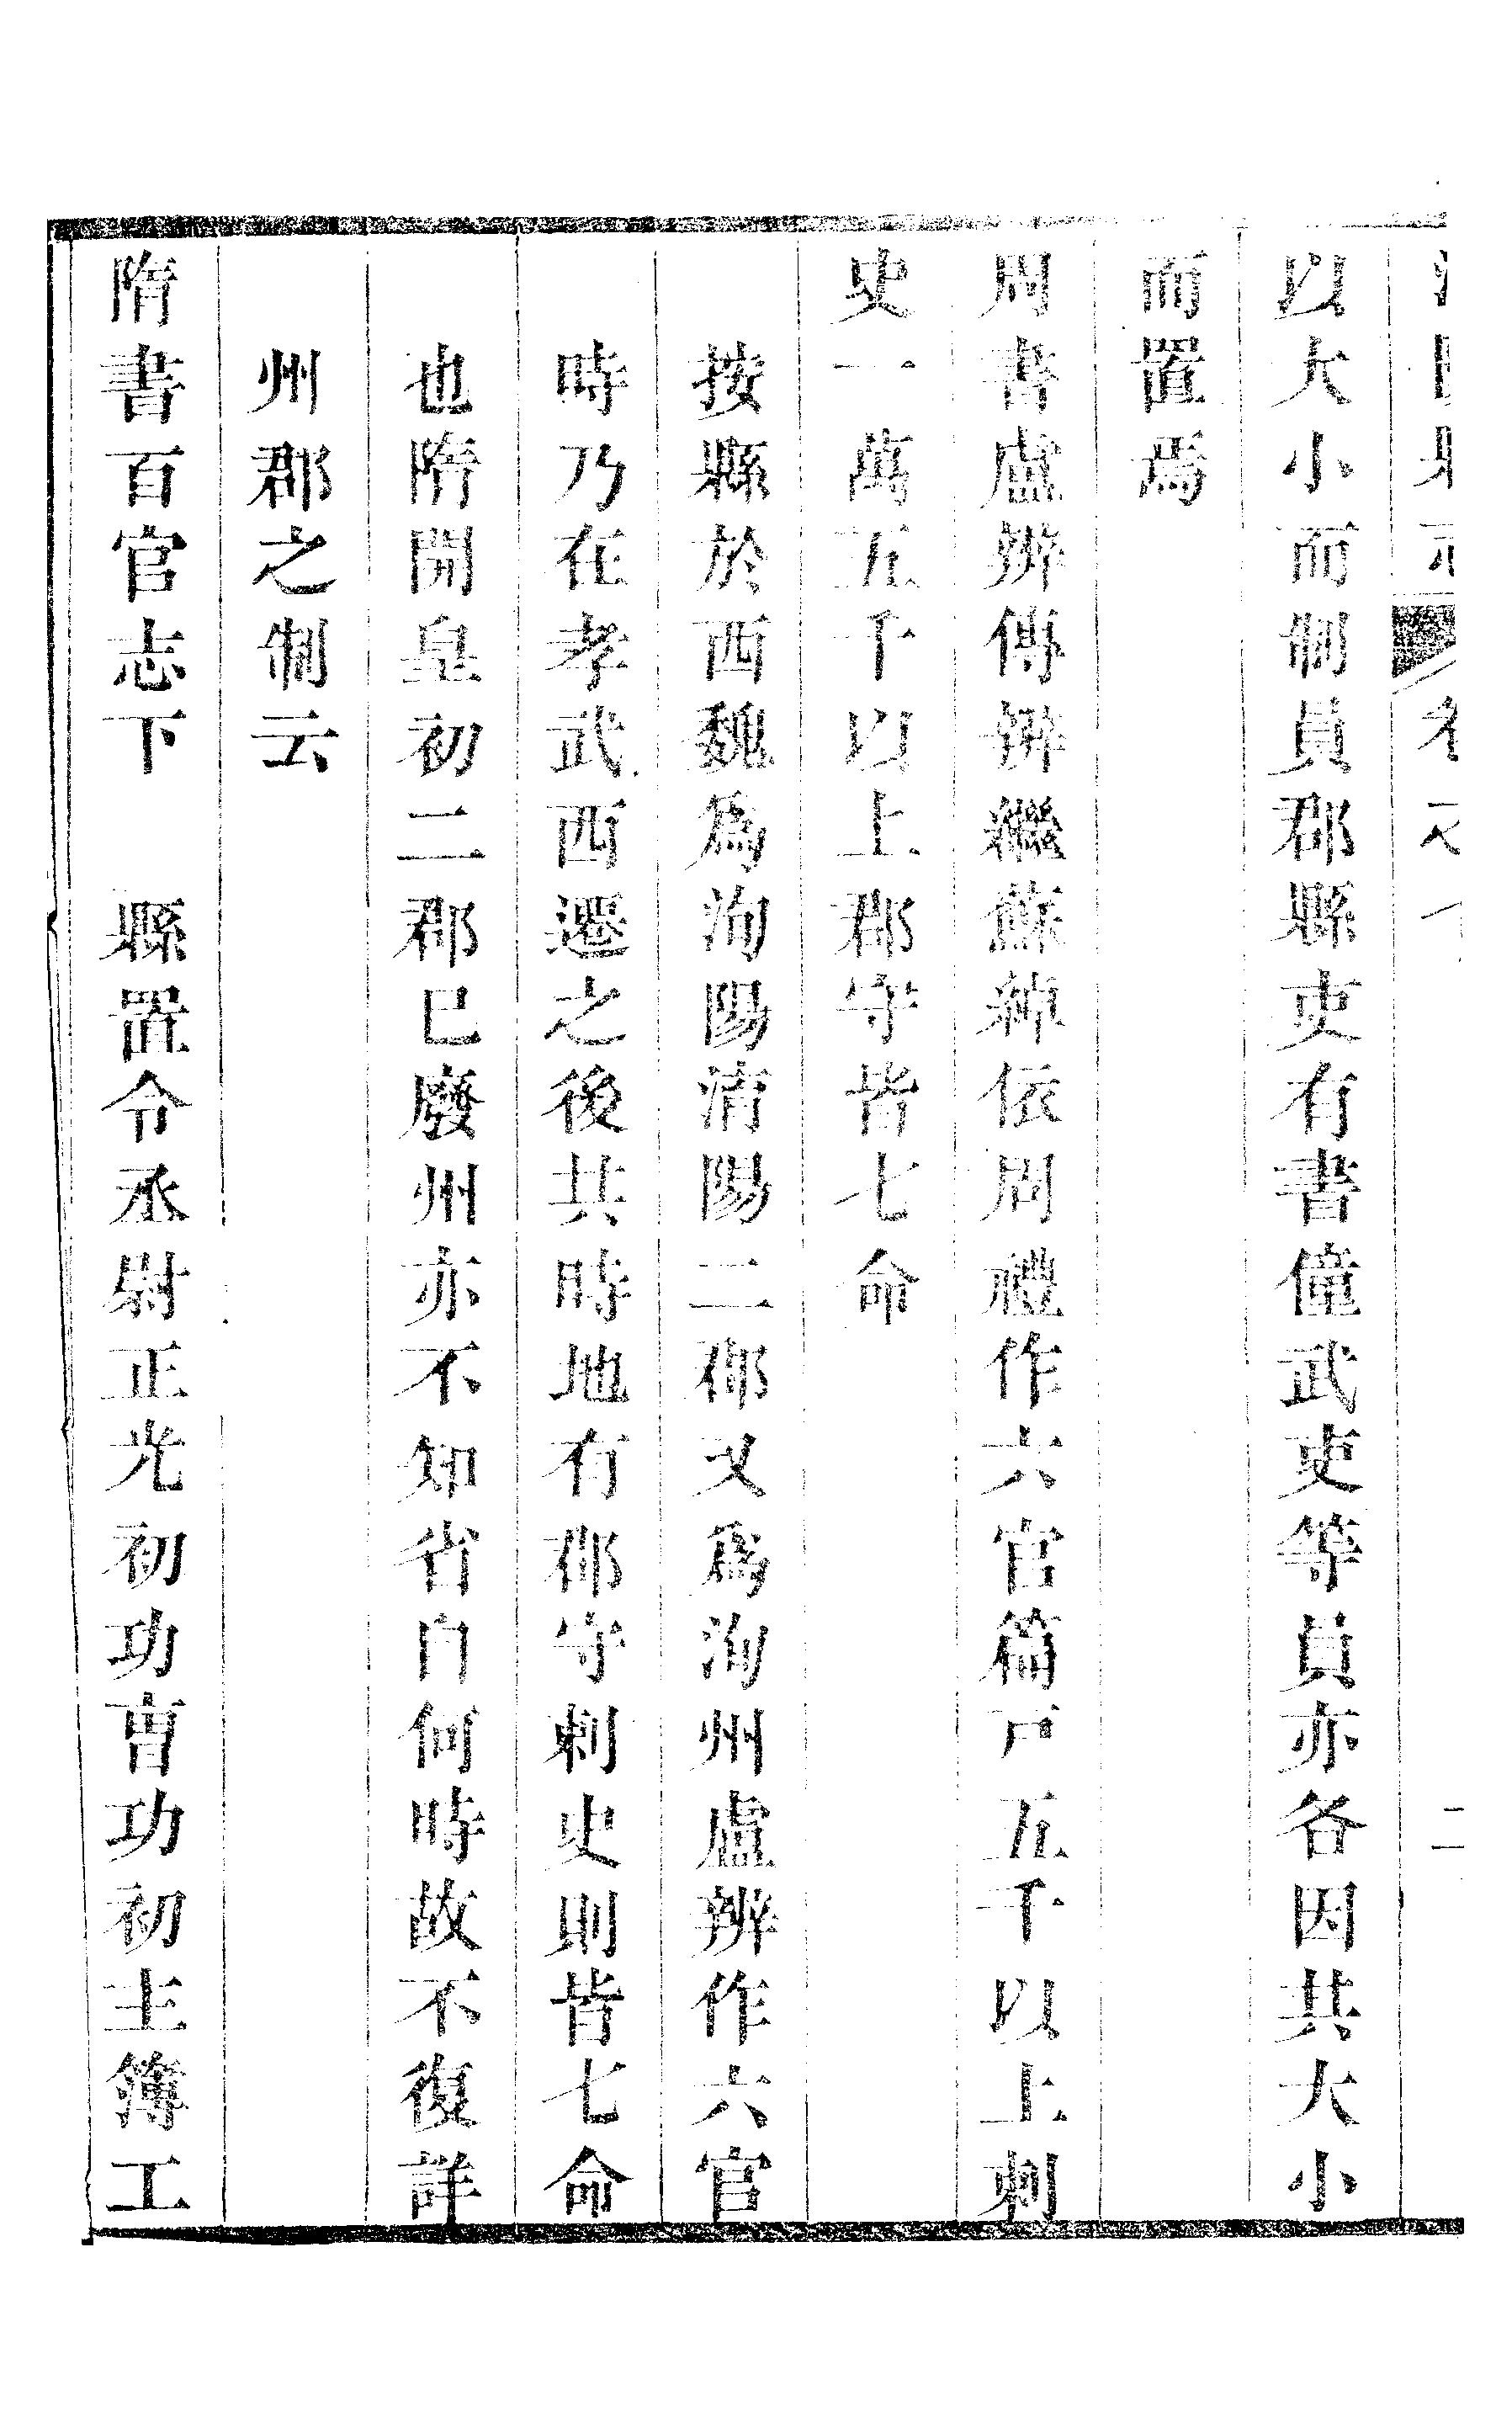 以大小而制員郡縣吏有書僮武吏等員亦各因其大小
而置焉
周書盧辨傳辨繼蘇綽依周禮作六官篇戸五千以上刺
史一萬五千以上郡守皆七命
按縣於西魏爲洵陽淯陽二郡又爲洵州盧辨作六官
時乃在孝武西遷之後其時地有郡守刺史則皆七命
也隋開皇初二郡已廢州亦不知省自何時故不復詳
州郡之制云
隋書百官志下　縣置令丞尉正光初功曹功初主簿工